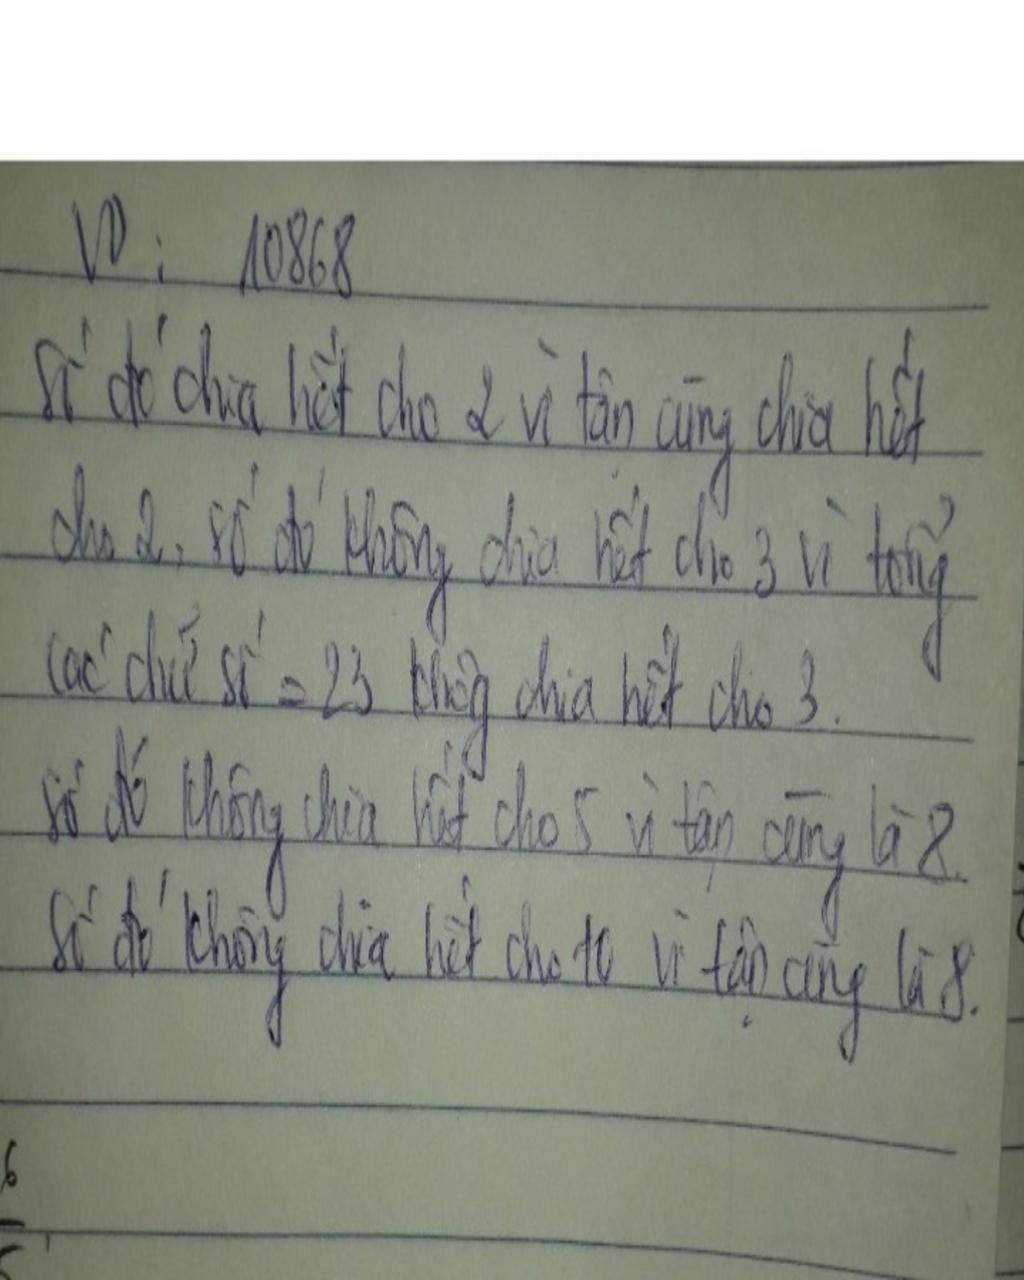 VD : 10868
số đó chia hết cho 2 vì tận cùng chia hết
cho 2, số đó không chia hết cho 3 vì tổng
các chữ số = 23 không chia hết cho 3.
số đó không chia hết cho 5 vì tận cùng là 8.
số đó không chia hết cho 10 vì tận cùng là 8.
6